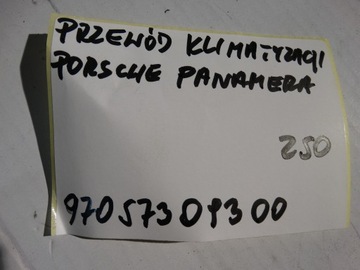 PRZEWÓD KLIMATYZACJI
PORSCHE PANAMERA
250
97057309300